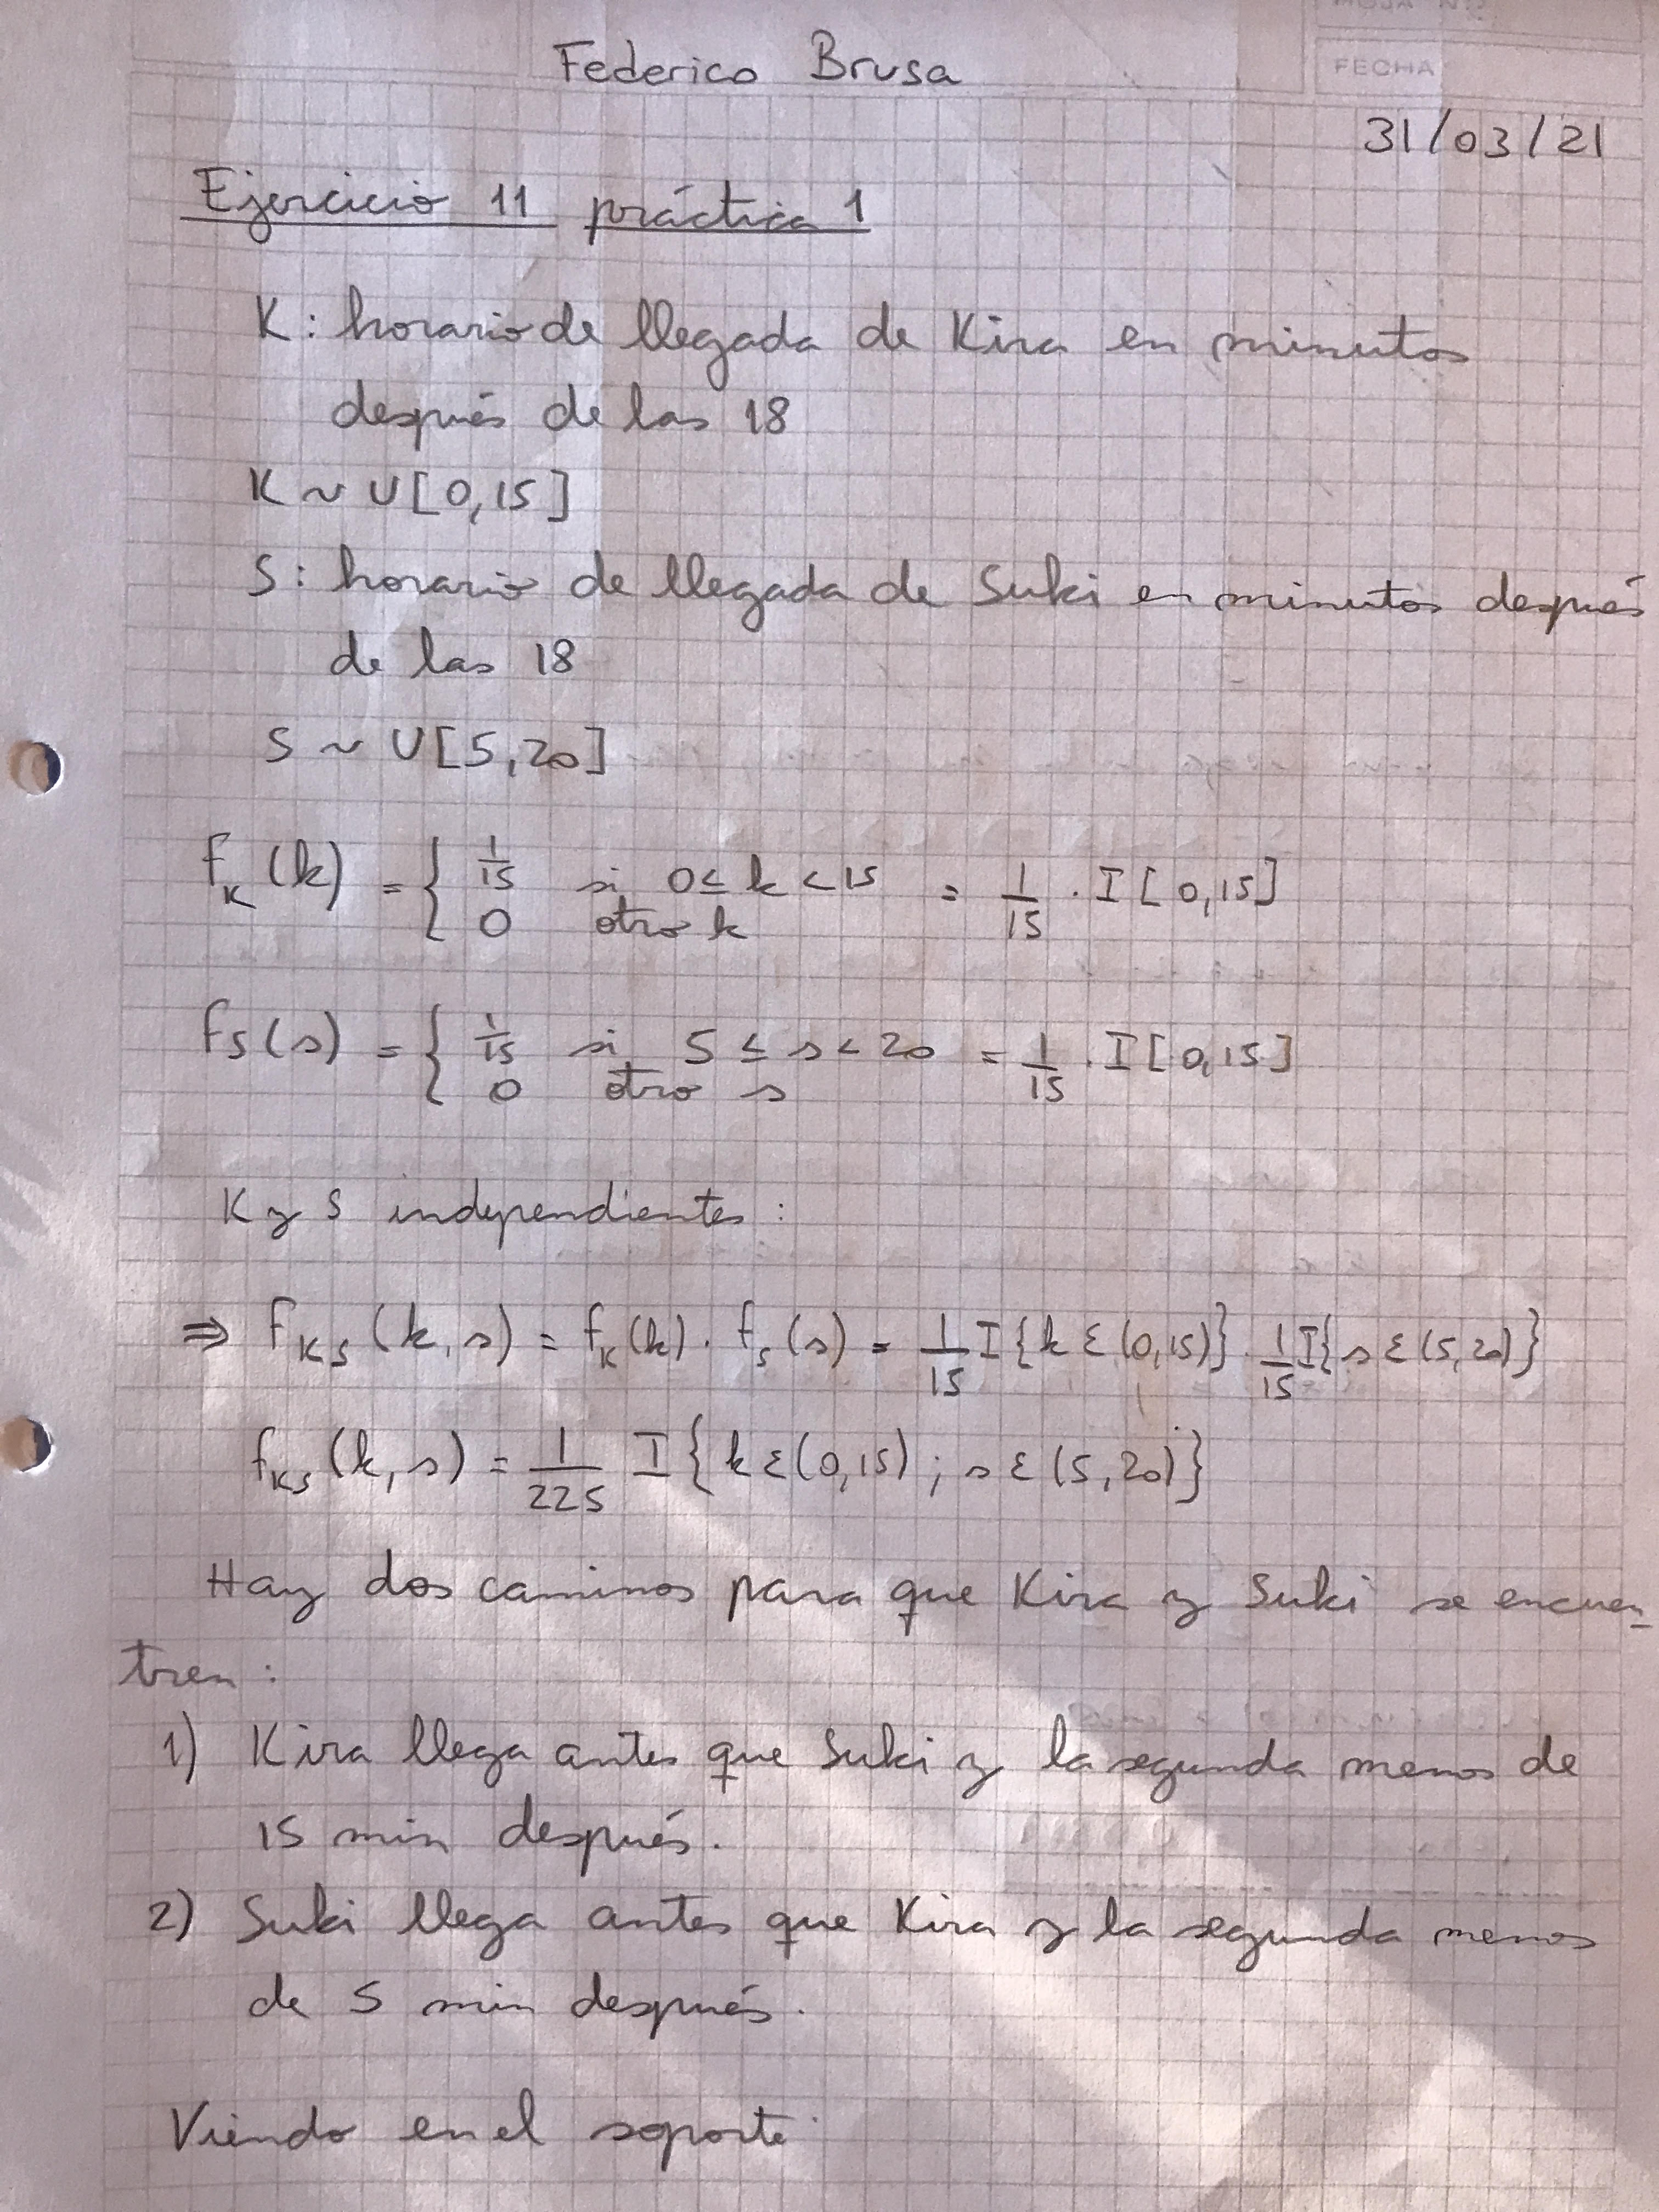 FECHA
Federico Brusa
31/03/21
Ejercicio 11 práctica 1
K: horario de llegada de Kira en minutos
después de las 18
K ~ U[0,15]
S: horario de llegada de Suki en minutos después
de las 18
S ~ U[5,20]
f_K(k) = { 1/15 si 0 ≤ k < 15 = 1/15 . I[0,15]
0 otro k
f_S(s) = { 1/15 si 5 ≤ s < 20 = 1/15 . I[0,15]
0 otro s
K y S independientes:
⇒ f_KS(k,s) = f_K(k) . f_S(s) = 1/15 I{k ε (0,15)} . 1/15 I{s ε (5,20)}
f_KS(k,s) = 1/225 I{k ε (0,15) ; s ε (5,20)}
Hay dos caminos para que Kira y Suki se encuen-
tren:
1) Kira llega antes que Suki y la segunda menos de
15 min después.
2) Suki llega antes que Kira y la segunda menos
de 5 min después.
Viendo en el soporte